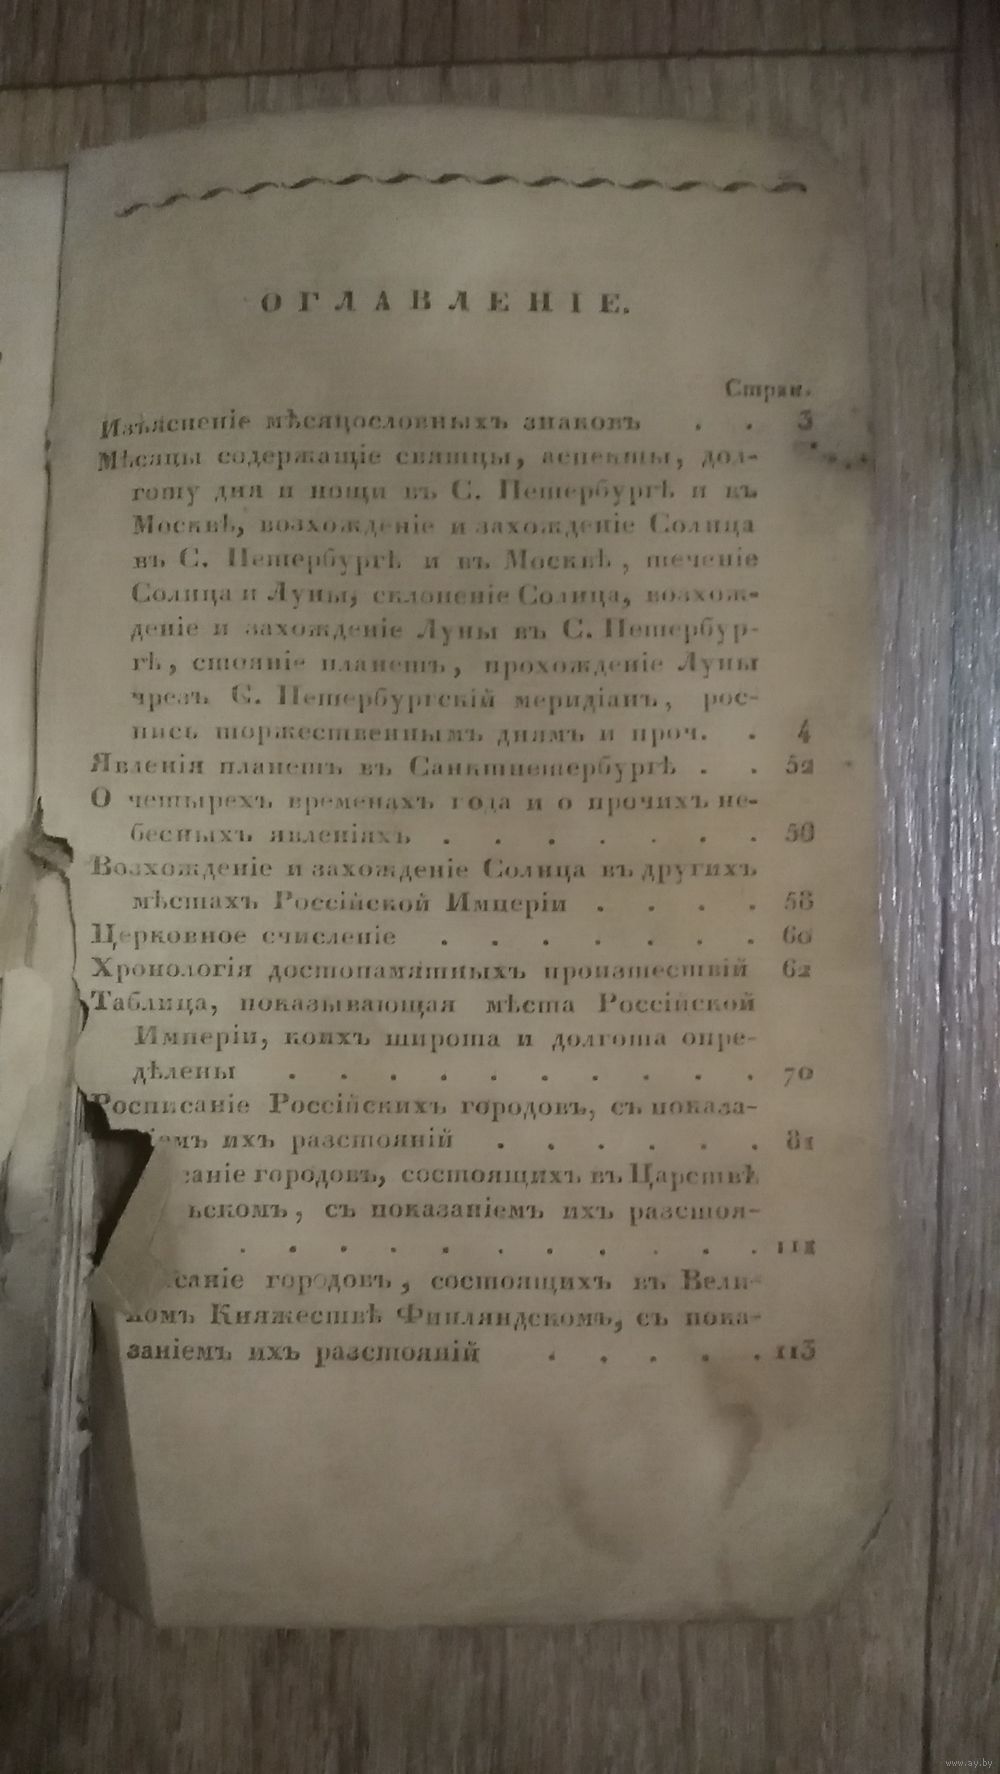 ОГЛАВЛЕНІЕ.
Стран.
Изъясненіе мѣсяцословныхъ знаковъ . . 3
Мѣсяцы содержащіе святцы, аспекты, дол-
готу дня и нощи въ С. Петербургѣ и въ
Москвѣ, возхожденіе и захожденіе Солнца
въ С. Петербургѣ и в Москвѣ, теченіе
Солнца и Луны, склоненіе Солнца, возхож-
деніе и захожденіе Луны въ С. Петербур-
гѣ, стояніе планетъ, прохожденіе Луны
чрезъ С. Петербургскій меридіанъ, рос-
пись торжественнымъ днямъ и проч. . 4
Явленія планетъ въ Санктпетербургѣ . . 52
О четырехъ временахъ года и о прочихъ не-
бесныхъ явленіяхъ . . . . . . . 56
Возхожденіе и захожденіе Солнца въ другихъ
мѣстахъ Россійской Имперіи . . . . 58
Церковное счисленіе . . . . . . . 60
Хронологія достопамятныхъ произшествій 62
Таблица, показывающая мѣста Россійской
Имперіи, коихъ широта и долгота опре-
дѣлены . . . . . . . . . . 70
Росписаніе Россійскихъ городовъ, съ показа-
іемъ ихъ разстояній . . . . . . 81
саніе городовъ, состоящихъ въ Царствѣ
ьскомъ, съ показаніемъ ихъ разстоя-
. . . . . . . . . . . 111
исаніе городовъ, состоящихъ въ Вели-
комъ Княжествѣ Финляндскомъ, съ пока-
заніемъ ихъ разстояній . . . . . 113
www.ay.by